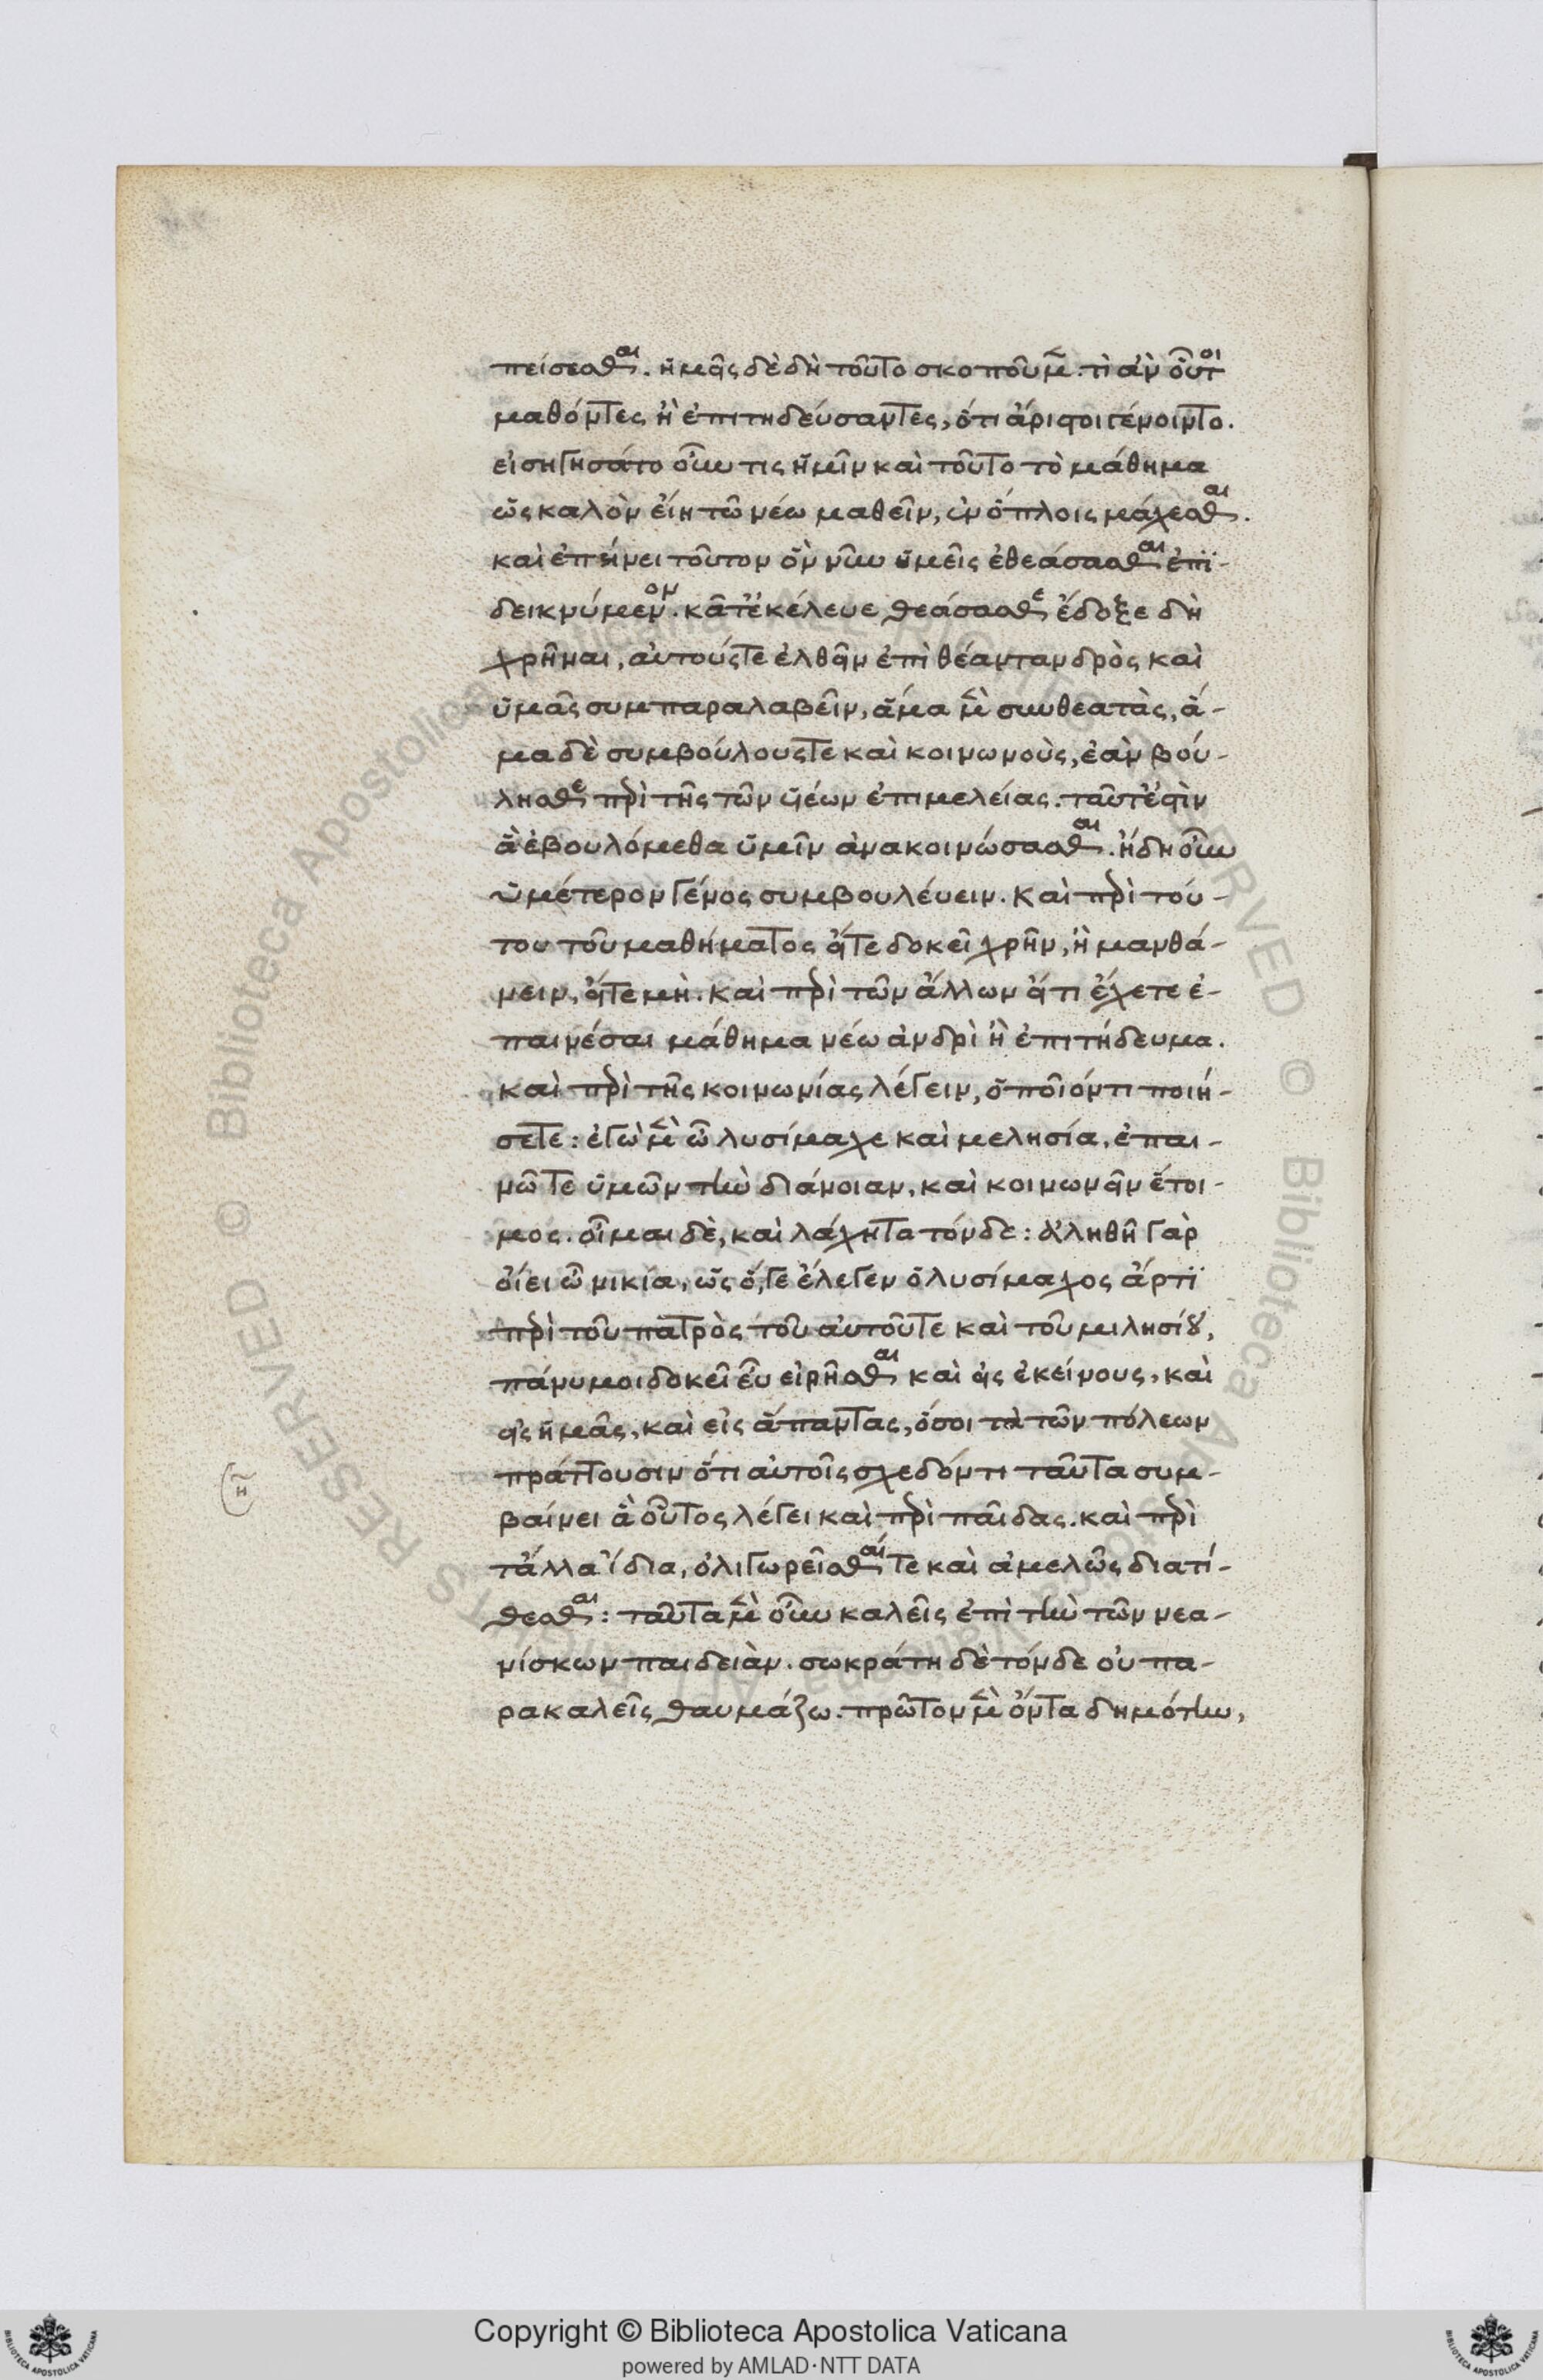 πείσεσθαι. ἡμεῖς δὲ δὴ τοῦτο σκοποῦμεν. τί ἂν οὗτοι
μαθόντες ἢ ἐπιτηδεύσαντες, ὅτι ἄριστοι γένοιντο.
εἰσηγήσατο οὖν τις ἡμῖν καὶ τοῦτο τὸ μάθημα
ὡς καλὸν εἴη τῶ νέω μαθεῖν, ἐν ὅπλοις μάχεσθαι.
καὶ ἐπήνει τοῦτον ὃν νῦν ὑμεῖς ἐθεάσασθαι ἐπι-
δεικνύμενον. κᾆτ' ἐκέλευε θεάσασθε ἔδοξε δὴ
χρῆναι, αὐτούς τε ἐλθεῖν ἐπὶ θέαν τανδρὸς καὶ
ὑμᾶς συμπαραλαβεῖν, ἅμα μὲν συνθεατὰς, ἅ-
μα δὲ συμβούλους τε καὶ κοινωνοὺς, ἐὰν βού-
λησθε περὶ τῆς τῶν ὑέων ἐπιμελείας. ταῦτ' ἐστὶν
ἃ ἐβουλόμεθα ὑμῖν ἀνακοινώσασθαι. ἤδη οὖν
ὑμέτερον γένος συμβουλεύειν. καὶ περὶ τού-
του τοῦ μαθήματος εἴτε δοκεῖ χρῆν, ἢ μανθά-
νειν, εἴτε μὴ. καὶ περὶ τῶν ἄλλων εἴ τι ἔχετε ἐ-
παινέσαι μάθημα νέω ἀνδρὶ ἢ ἐπιτήδευμα.
καὶ περὶ τῆς κοινωνίας λέγειν, ὁποῖόν τι ποιή-
σετε: ἐγὼ μὲν ὦ λυσίμαχε καὶ μελησία, ἐπαι-
νῶ τε ὑμῶν τὴν διάνοιαν, καὶ κοινωνεῖν ἕτοι-
μος. οἶμαι δὲ, καὶ λάχητα τόνδε: ἀληθῆ γὰρ
οἴει ὦ νικία, ὡς ὅ,γε ἔλεγεν ὁ λυσίμαχος ἄρτι
περὶ τοῦ πατρὸς τοῦ αὐτοῦ τε καὶ τοῦ μιλησίου,
πάνυ μοι δοκεῖ εὖ εἰρῆσθαι καὶ εἰς ἐκείνους, καὶ
εἰς ἡμᾶς, καὶ εἰς ἅπαντας, ὅσοι τὰ τῶν πόλεων
πράττουσιν ὅτι αὐτοῖς σχεδόν τι ταῦτα συμ-
βαίνει ἃ οὗτος λέγει καὶ περὶ παῖδας. καὶ περὶ
τἆλλα ἴδια, ὀλιγωρεῖσθαί τε καὶ ἀμελῶς διατί-
θεσθαι: ταῦτα μὲν οὖν καλεῖς ἐπὶ τὴν τῶν νεα-
νίσκων παιδειὰν. σωκράτη δὲ τόνδε οὐ πα-
ρακαλεῖς θαυμάζω. πρῶτον μὲν ὄντα δημότην,
η
Copyright © Biblioteca Apostolica Vaticana
powered by AMLAD·NTT DATA